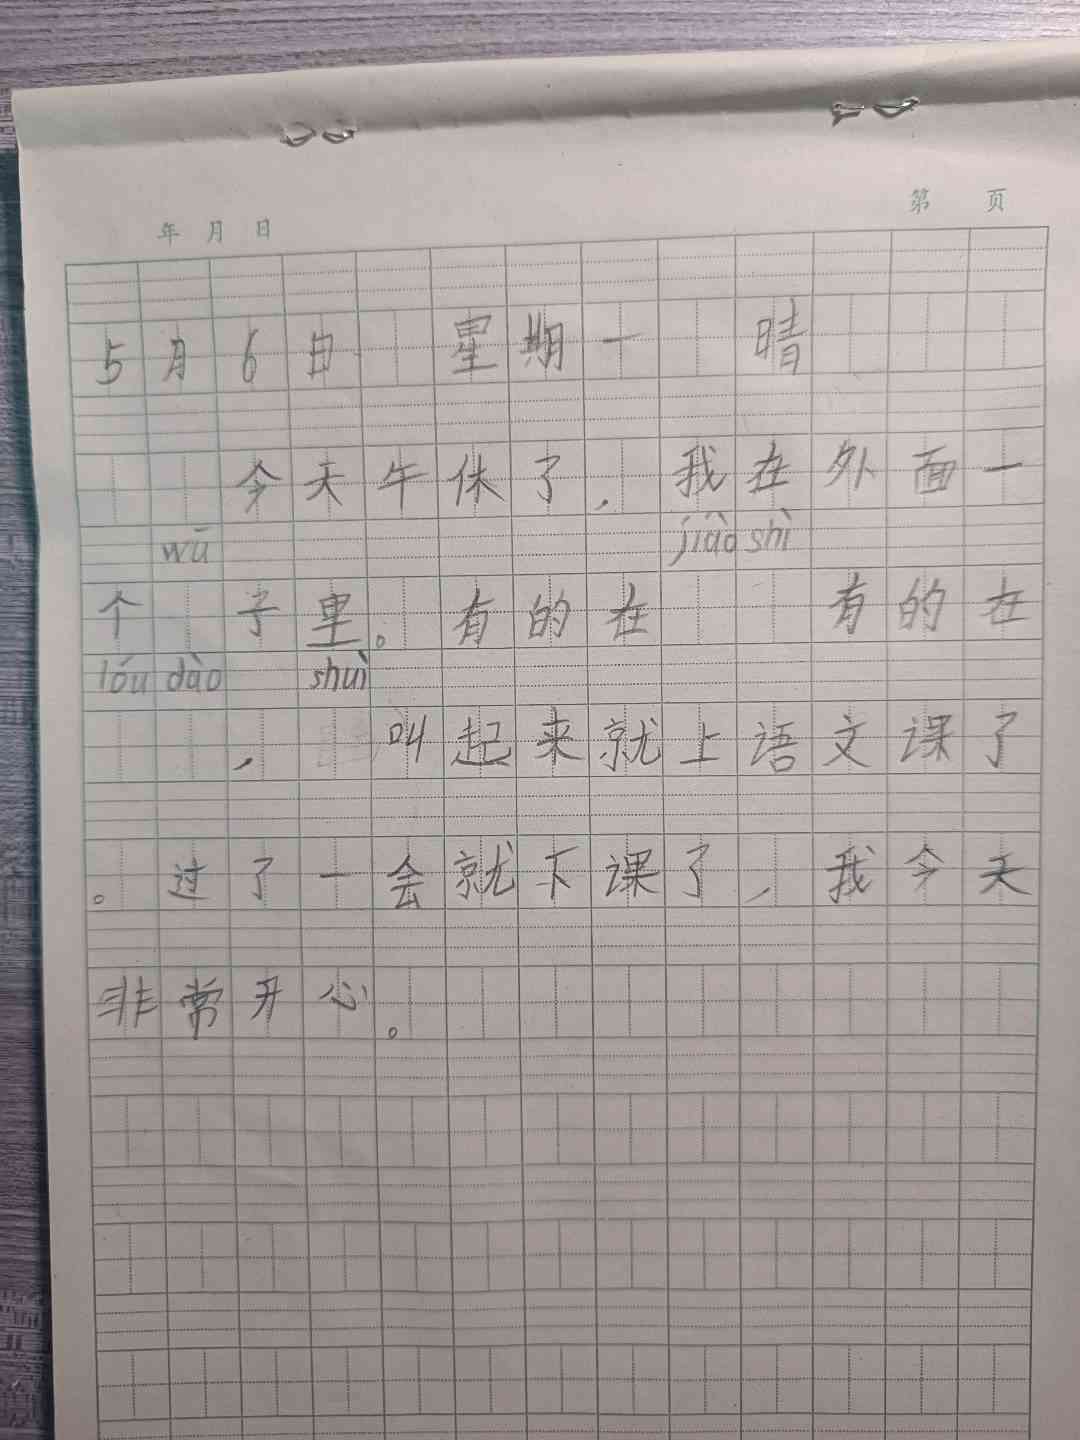 第 页
年 月 日
5月6日 星期一 晴
今天午休了，我在外面一
wū jiào shì
个 子里。有的在 有的在
lóu dào shuì
， 叫起来就上语文课了
。过了一会就下课了，我今天
非常开心。